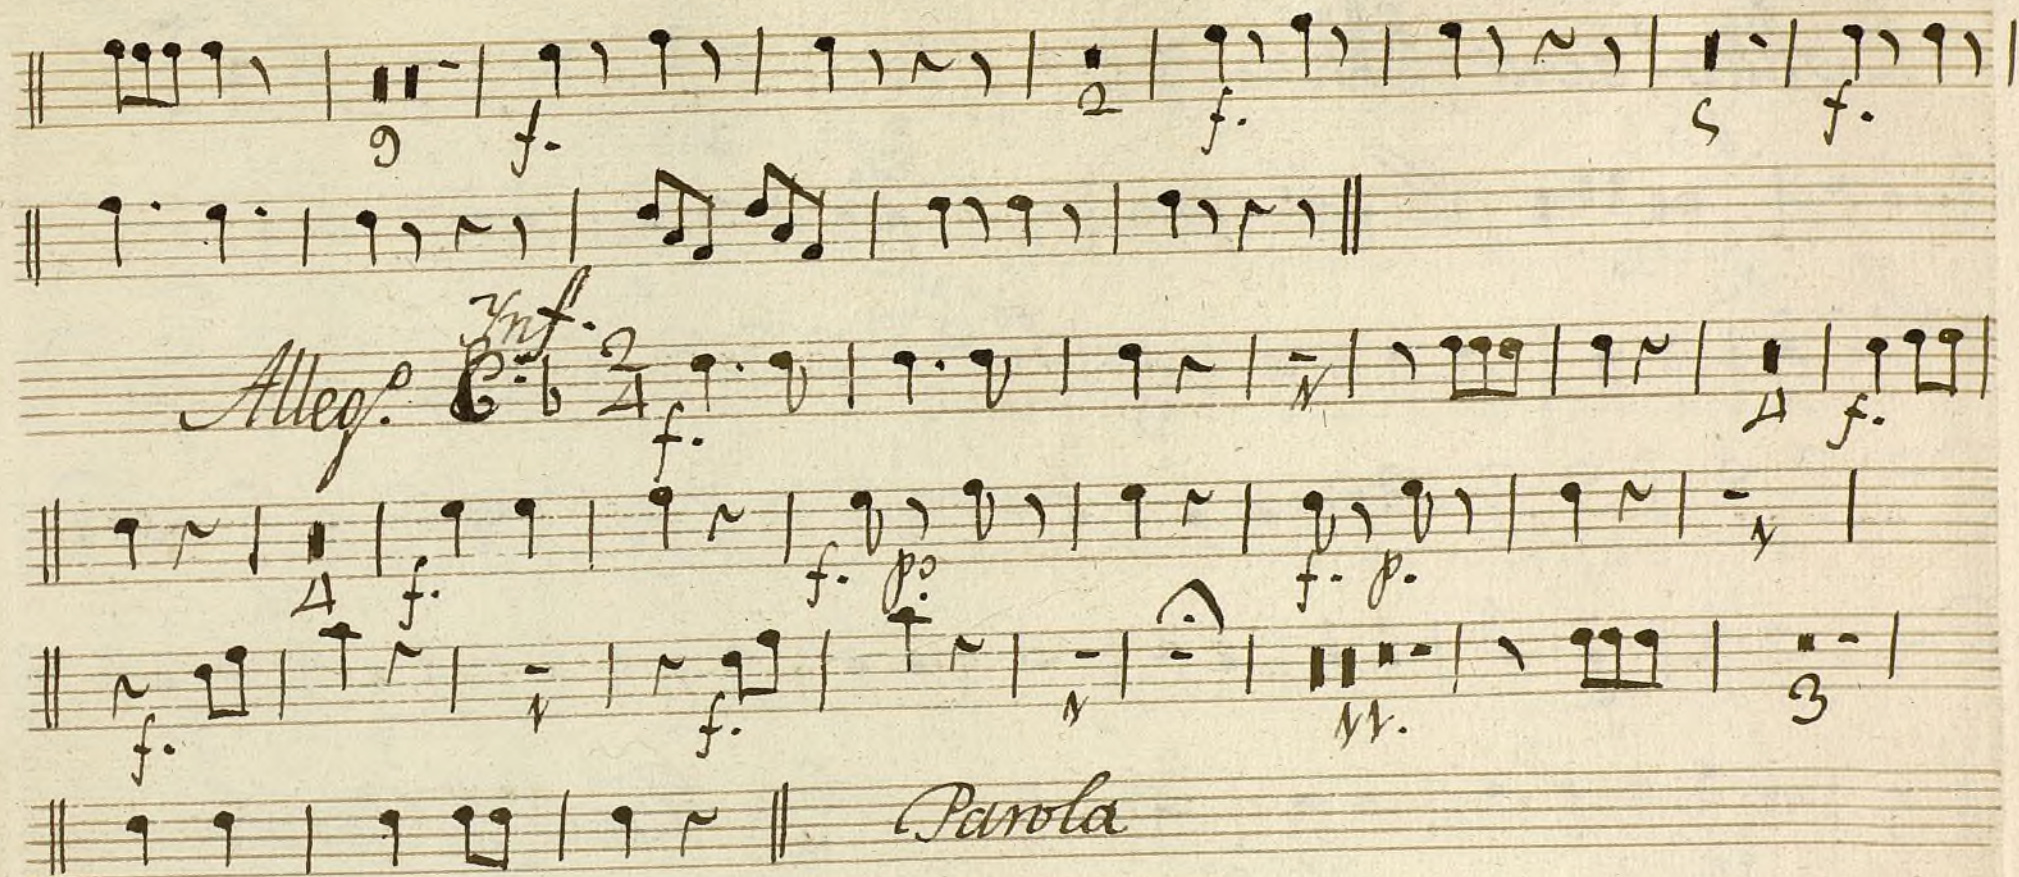 9 f. 2 f. 5 f.
Inf.
Alleg.o 2/4 f. 1 4 f.
4 f. f. p.o f. p. 1
f. 1 f. 1 11. 3
Parola